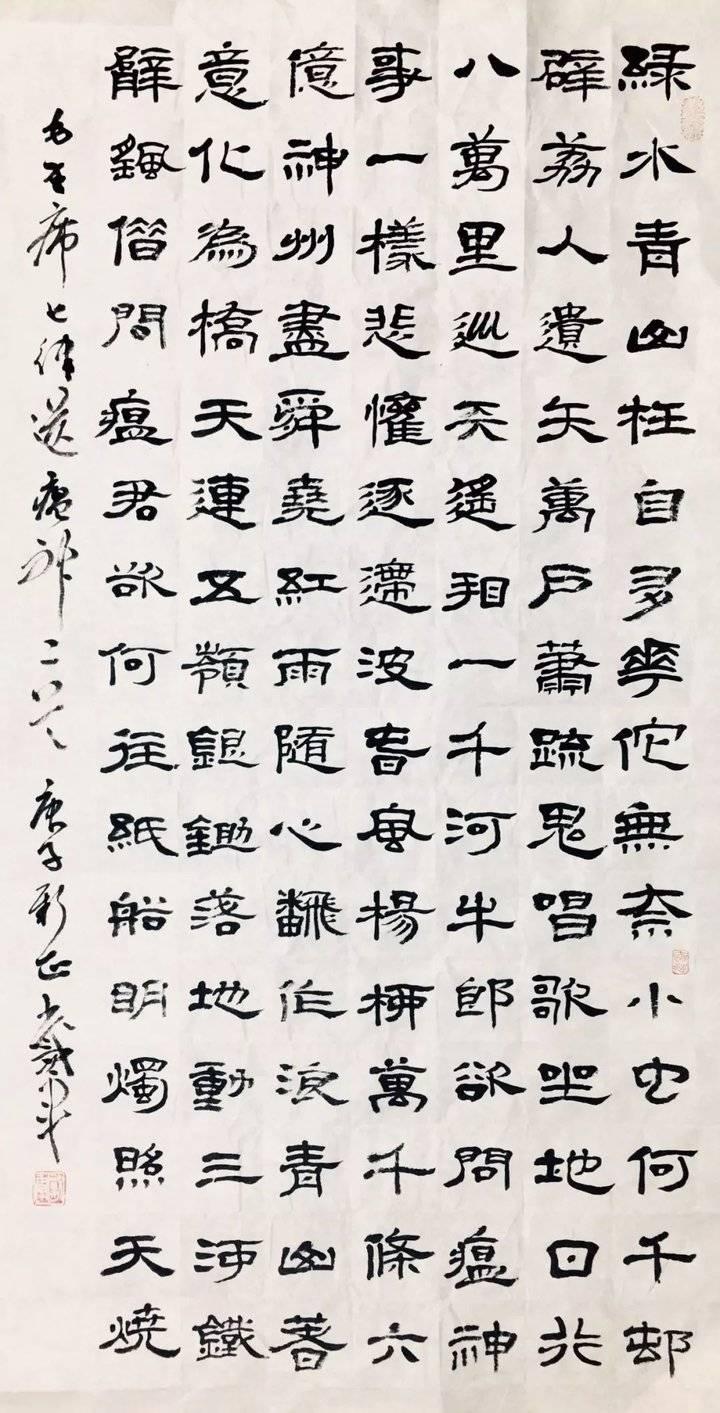 綠水青山枉自多華佗無奈小虫何千邨
薜荔人遺矢萬戶蕭疏鬼唱歌坐地日行
八萬里巡天遙相一千河牛郎欲問瘟神
事一樣悲懽逐遰波春風楊柳萬千條六
億神州盡舜堯紅雨隨心飜作浪青山著
意化為橋天連五嶺銀鋤落地動三河鐵
臂借問瘟君欲何往紙船明燭照天燒
毛主席七律送瘟神二首 庚子新正